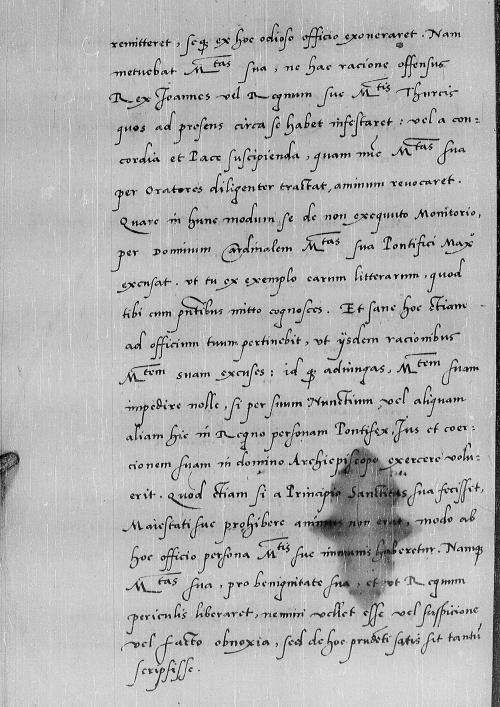 remitteret, seq3 ex hoc odioso officio exoneraret. Nam
metuebat Mtas sua, ne hac racione offensus
Rex Joannes vel Regnum sue Mtis Thurcis
quos ad presens circa se habet infestaret: vel a con:
cordia et Pace suscipienda, quam nūc Mtas sua
per Oratores diligenter tractat, animum revocaret.
Quare in hunc modum se de non exequuto Monitorio,
per Dominum Cardinalem Mtas sua Pontifici Max°
excusat. ut tu ex exemplo earum litterarum, quod
tibi cum pn̄tibus mitto cognosces. Et sane hoc etiam
ad officium tuum pertinebit, ut ijsdem racionibus
Mtem suam excuses: id q3 adiungas, Mtem suam
impedire nolle, si per suum Nunctium vel aliquam
aliam hic in Regno personam Pontifex, Jus et coer:
cionem suam in domino Archiepiscopo exercere volu:
erit. Quod etiam si a Principio Sanctitas sua fecisset,
Maiestati sue prohibere animus non erat, modo ab
hoc officio persona Mtis sue inmunis haberetur. Namq3
Mtas sua, pro benignitate sua, et ut Regnum
periculis liberaret, nemini vellet esse vel suspicione
vel facto obnoxia, sed de hoc prudēti satis sit tantū
scripsisse.